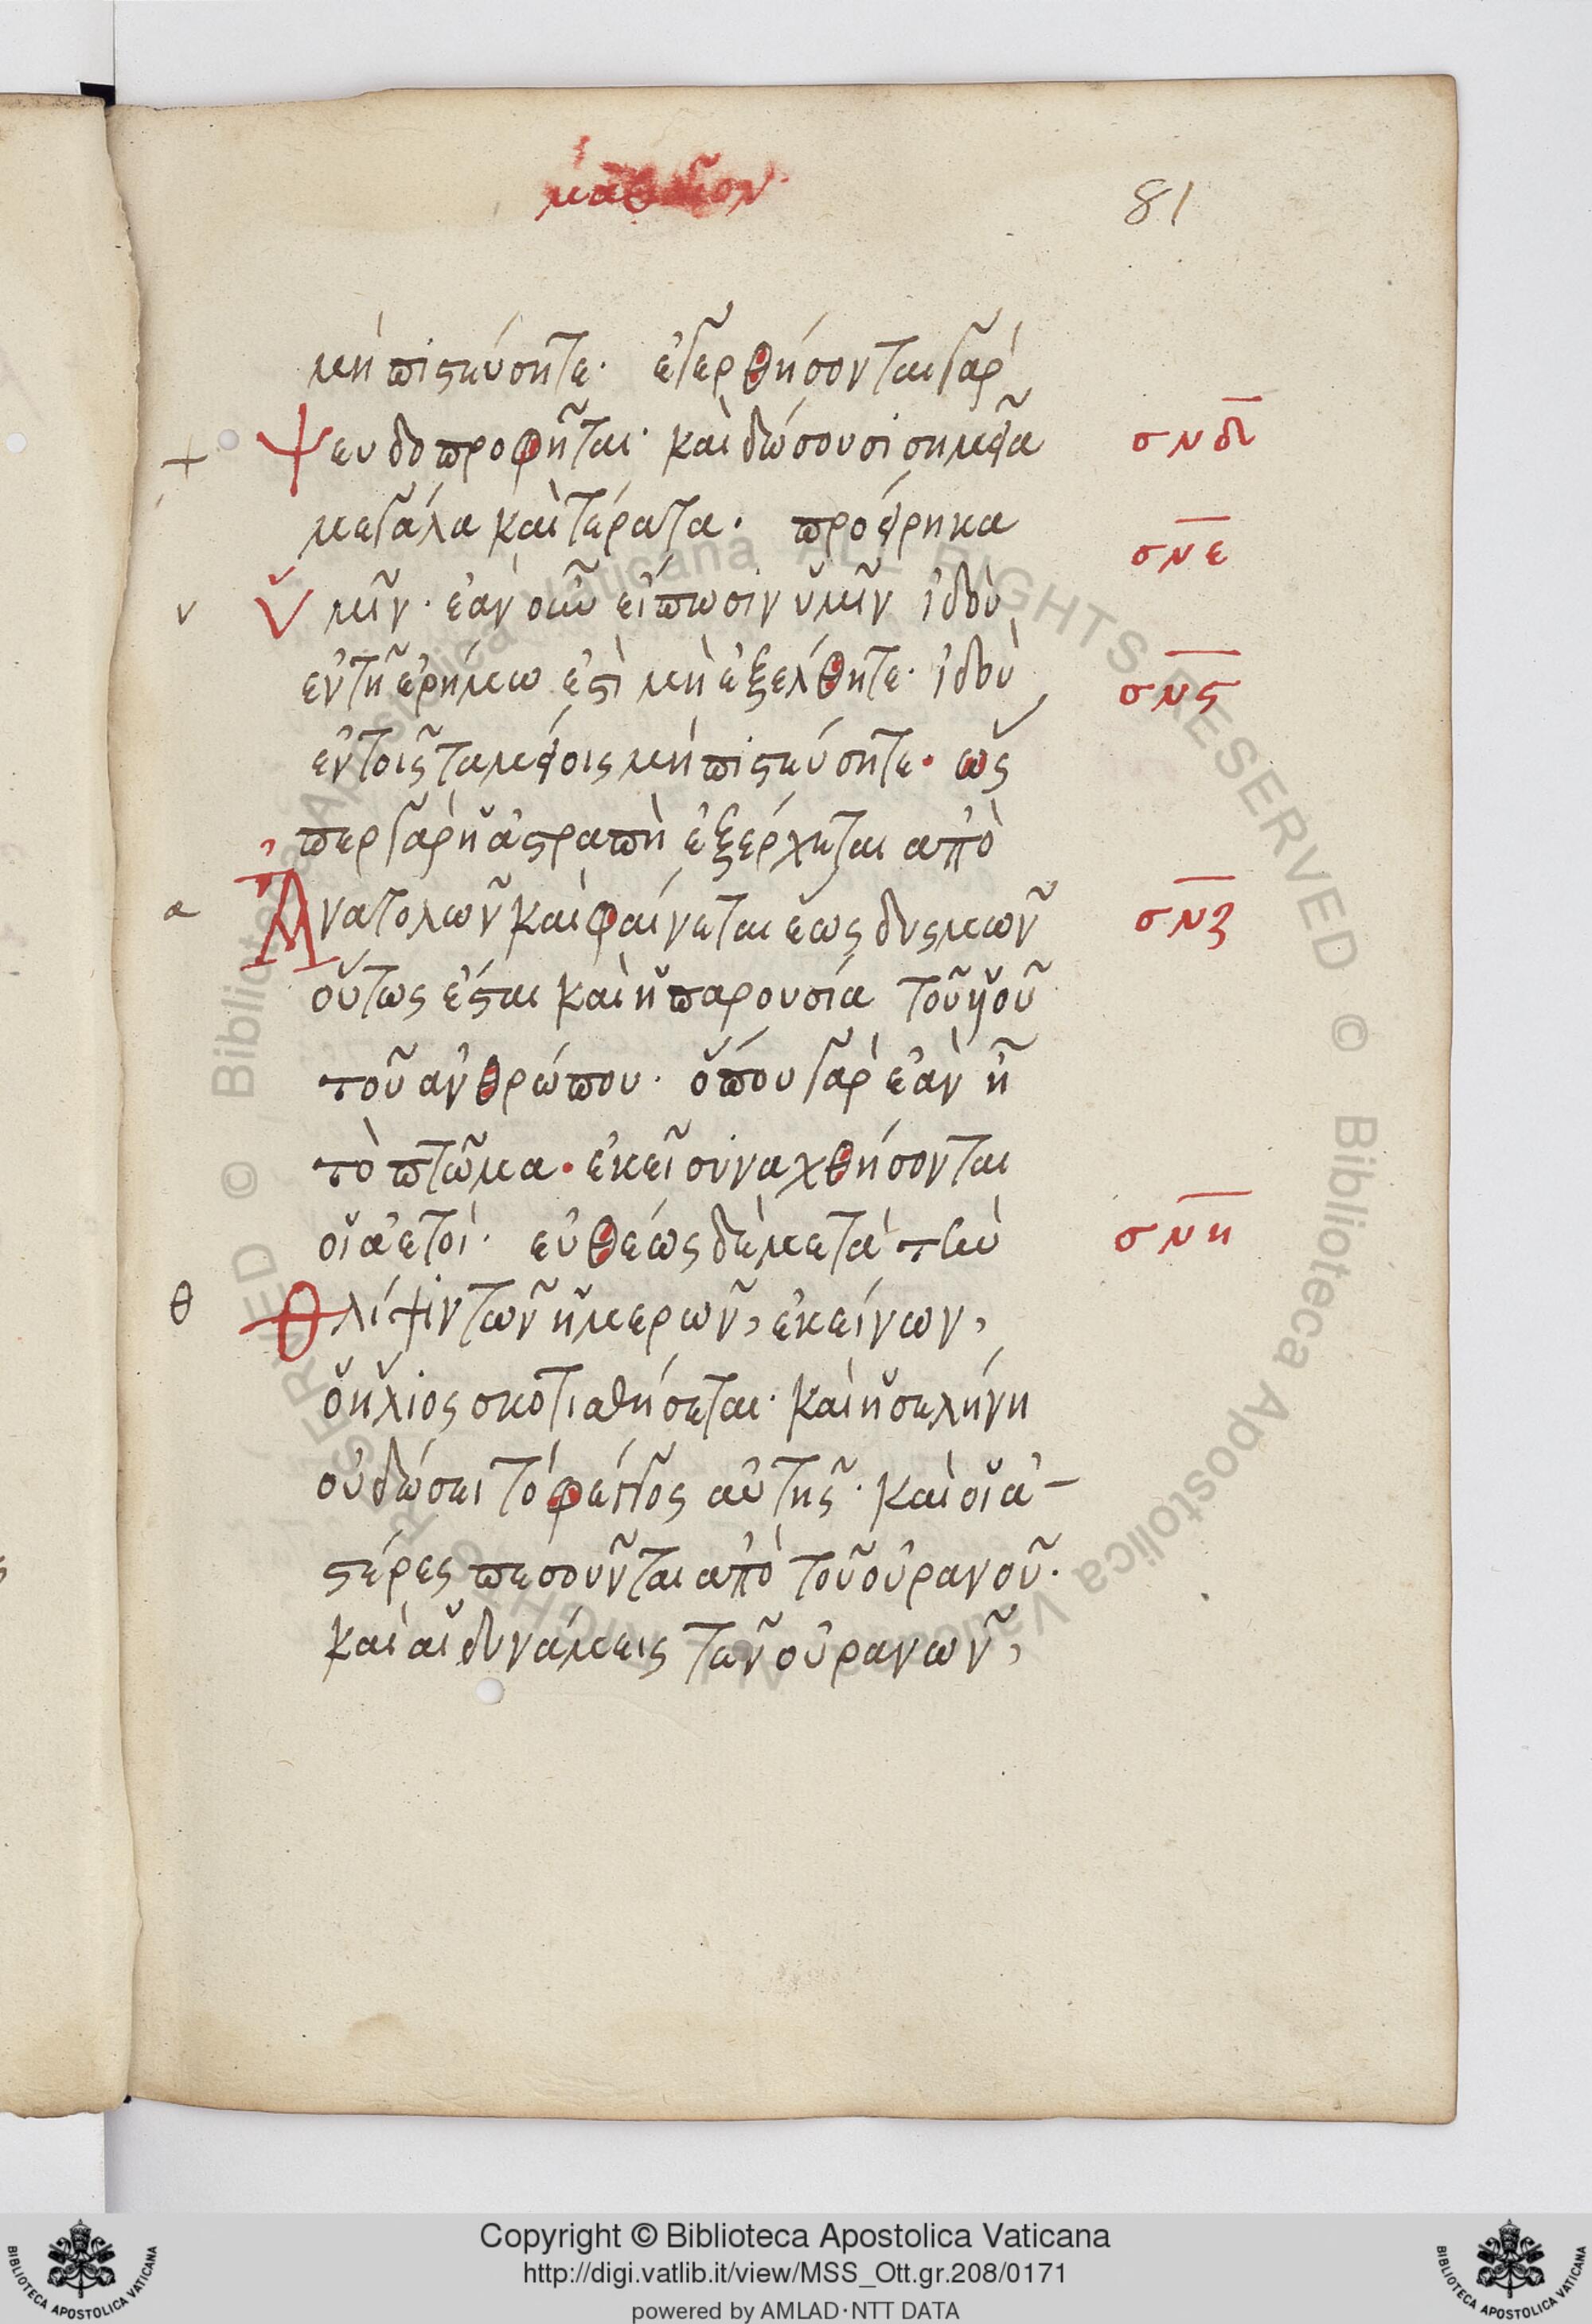 ματθαῖον
81
μὴ πιστεύσητε· ἐγερθήσονται γὰρ
ψευδοπροφῆται· καὶ δώσουσι σημεῖα
σνδ
μεγάλα καὶ τέρατα· προείρηκα
σνε
ὑμῖν· ἐὰν οὖν εἴπωσιν ὑμῖν ἰδοὺ
ἐν τῇ ἐρήμω ἐστὶ μὴ ἐξέλθητε· ἰδοὺ
σνς
ἐν τοῖς ταμείοις μὴ πιστεύσητε· ὥς
περ γὰρ ἡ ἀστραπὴ ἐξέρχεται ἀπὸ
Ἀνατολῶν καὶ φαίνεται ἕως δυσμῶν
σνζ
οὕτως ἔσται καὶ ἡ παρουσία τοῦ υἱοῦ
τοῦ ἀνθρώπου· ὅπου γὰρ ἐὰν ἦ
τὸ πτῶμα· ἐκεῖ συναχθήσονται
οἱ ἀετοί· εὐθέως δὲ μετὰ τὴν
σνη
Θλίψιν τῶν ἡμερῶν, ἐκείνων,
ὁ ἥλιος σκοτισθήσεται· καὶ ἡ σελήνη
οὐ δώσει τὸ φέγγος αὐτῆς· καὶ οἱ ἀ-
στέρες πεσοῦνται ἀπὸ τοῦ οὐρανοῦ·
καὶ αἱ δυνάμεις τῶν οὐρανῶν,
Copyright © Biblioteca Apostolica Vaticana
http://digi.vatlib.it/view/MSS_Ott.gr.208/0171
powered by AMLAD·NTT DATA